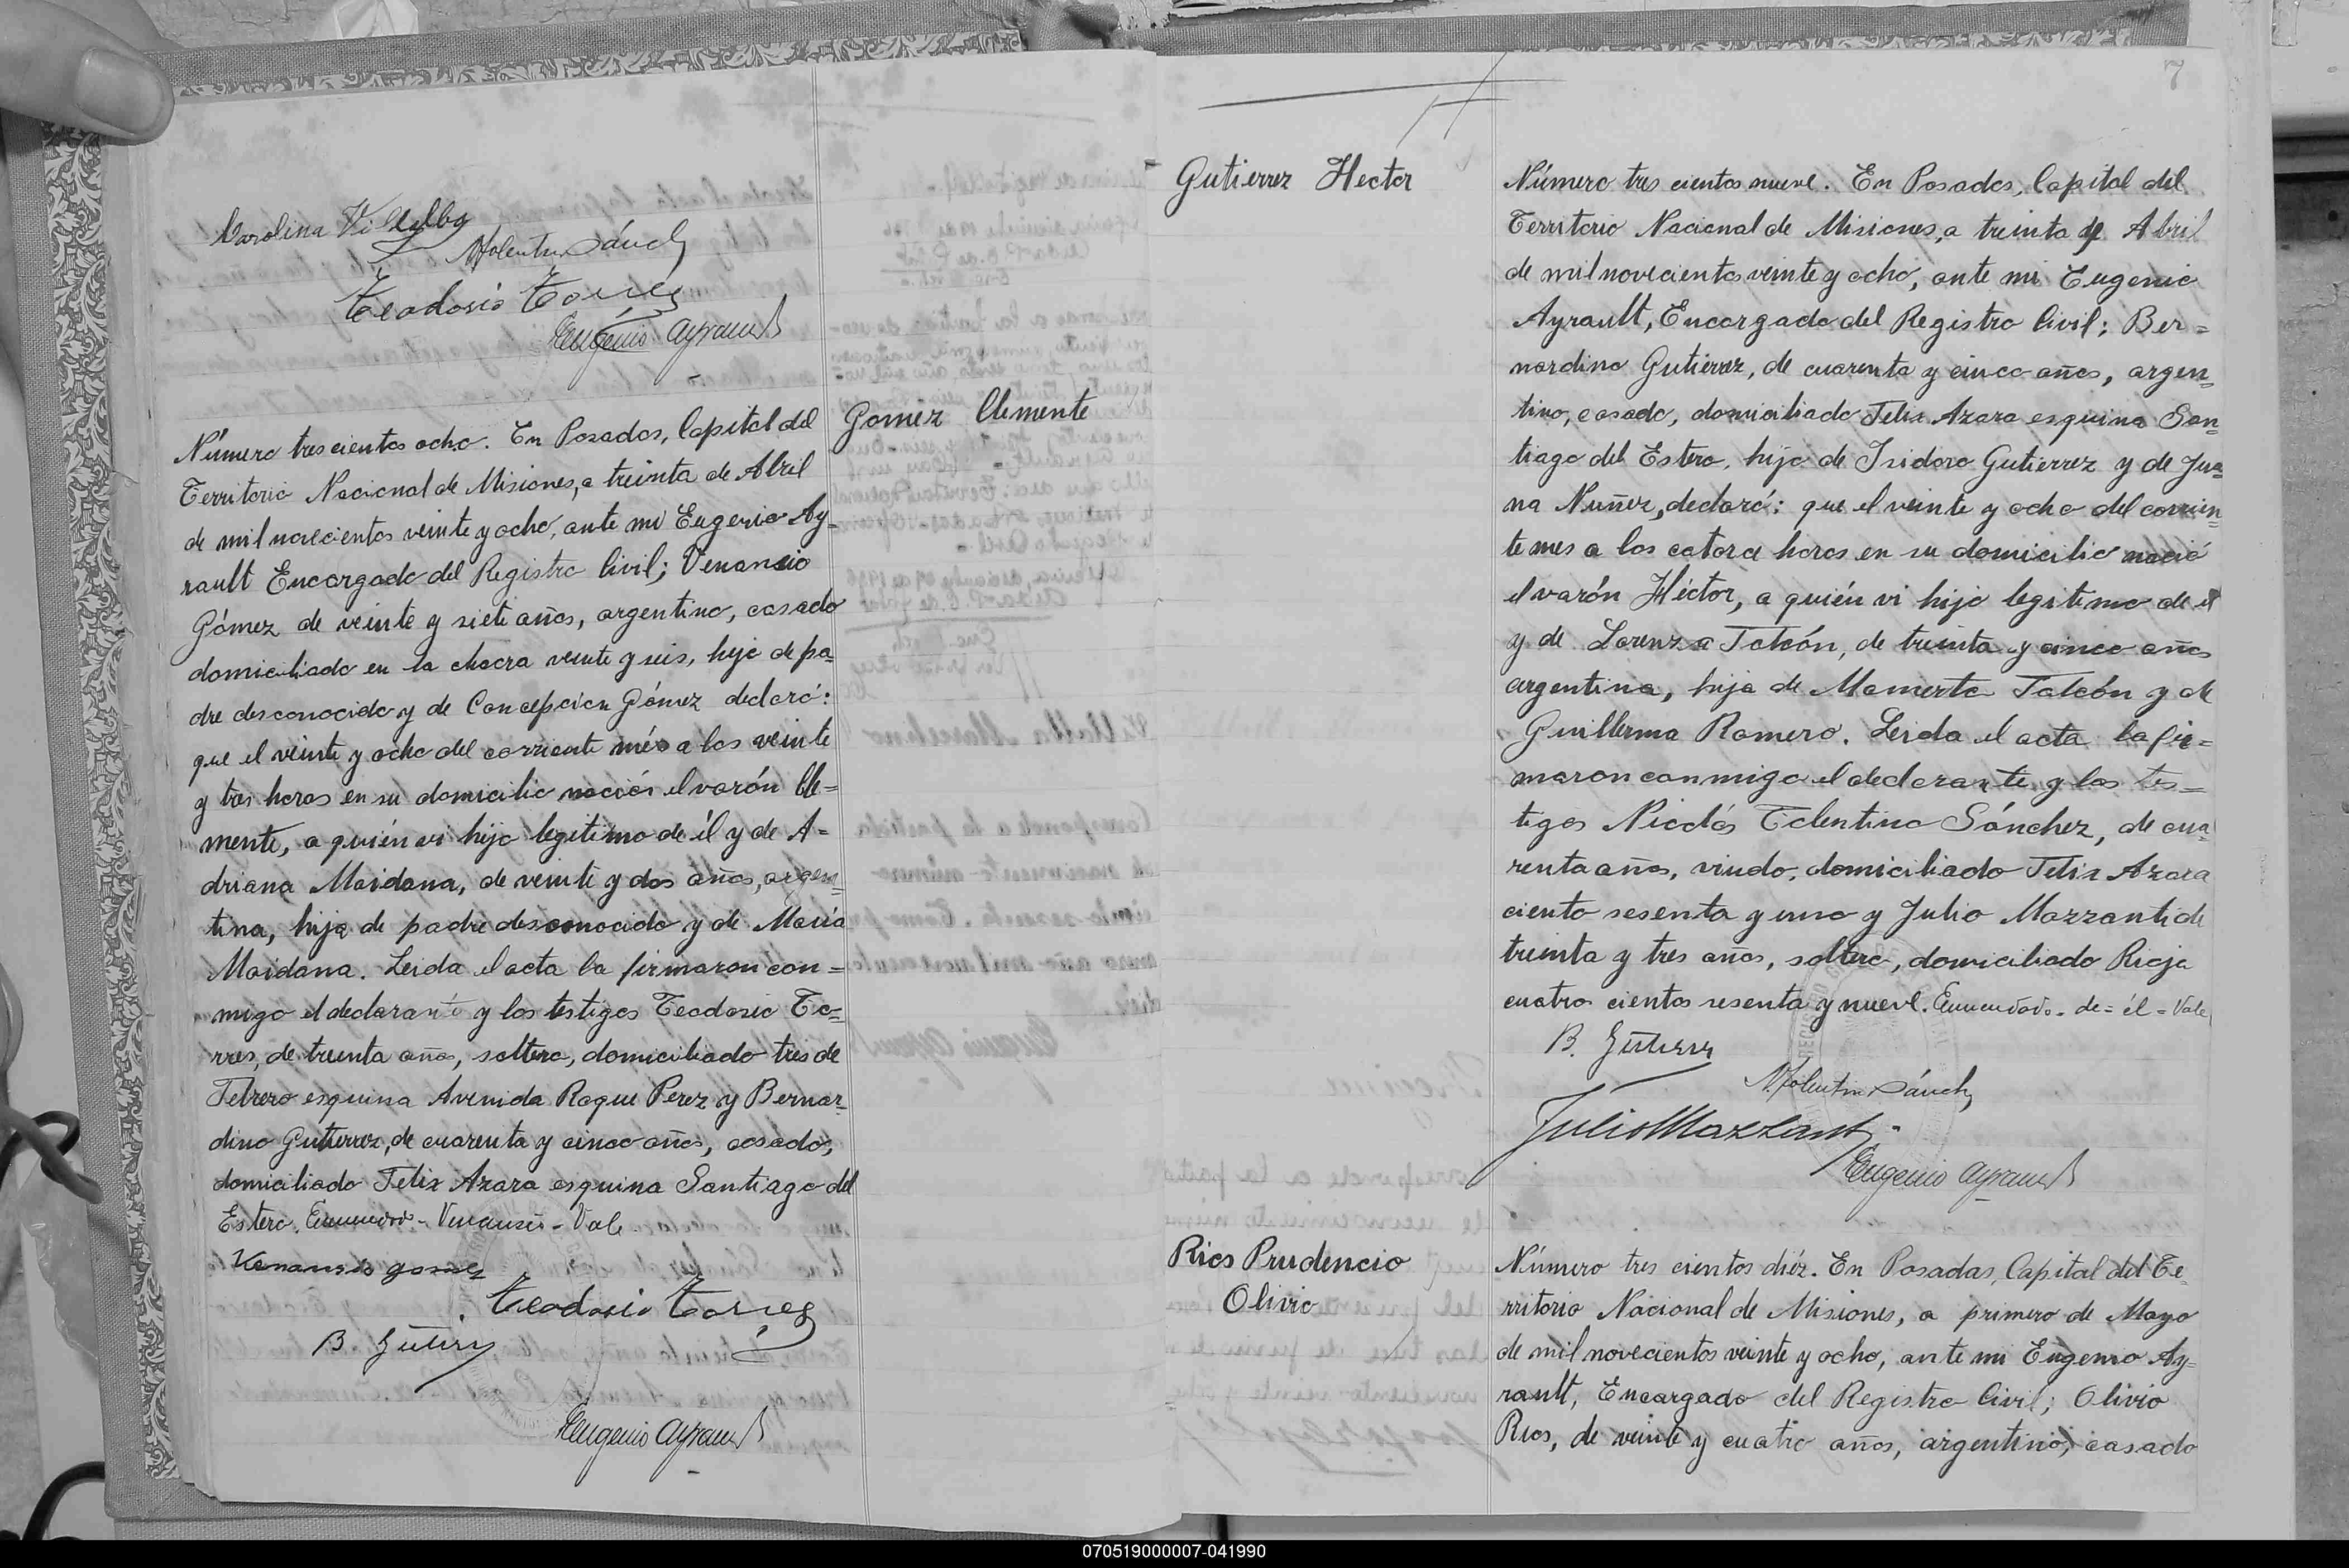 Carolina Villalba
NTolentino Sánch
Teodosio Torres
Eugenio Ayrault
Gomez Clemente
Número tres cientos ocho. En Posadas, Capital del
Territorio Nacional de Misiones, a treinta de Abril
de mil novecientos veinte y ocho, ante mi Eugenio Ay-
rault Encargado del Registro Civil; Venancio
Gómez de veinte y siete años, argentino, casado
domiciliado en la chacra veinte y seis, hijo de pa-
dre desconocido y de Concepcion Gómez declaró:
que el veinte y ocho del corriente més a las veinte
y tres horas en su domicilio nació el varón Cle=
mente, a quién vi hijo legitimo de él y de A=
driana Maidana, de veinte y dos años, argen=
tina, hija de padre desconocido y de María
Maidana. Leida el acta la firmaron con=
migo el declarante y los testigos Teodosio To=
rres, de treinta años, soltero, domiciliado tres de
Febrero esquina Avenida Roque Perez y Bernar-
dino Gutierrez, de cuarenta y cinco años, casado,
domiciliado Felix Azara esquina Santiago del
Estero. Enmendado - Venancio - Vale
Venansio gomez
Teodosio Torres
B. Gutierrz
Eugenio Ayrault
7
Gutierrez Hector
Número tres cientos nueve. En Posadas, Capital del
Territorio Nacional de Misiones, a treinta de Abril
de mil novecientos veinte y ocho, ante mi Eugenio
Ayrault, Encargado del Registro Civil; Ber=
nardino Gutierrez, de cuarenta y cinco años, argen=
tino, casado, domiciliado Felix Azara esquina San=
tiago del Estero, hijo de Isidoro Gutierrez y de Jua=
na Nuñez, declaró: que el veinte y ocho del corrien=
te mes a las catorce horas en su domicilio nació
el varón Héctor, a quién vi hijo legitimo de él
y de Lorenza Falcón, de treinta y cinco años
argentina, hija de Mamerto Falcón y de
Guillerma Romero. Leida el acta la fir=
maron conmigo el declarante y los tes=
tigos Nicolás Tolentino Sánchez, de cua=
renta años, viudo, domiciliado Felix Azara
ciento sesenta y uno y Julio Mazzanti de
treinta y tres años, soltero, domiciliado Rioja
cuatro cientos sesenta y nueve. Enmendado - de = él = Vale
B. Gutierrz
NTolentino Sánch
Julio Mazzanti
Eugenio Ayrault
Rios Prudencio
Olivio
Número tres cientos diéz. En Posadas, Capital del Te-
rritorio Nacional de Misiones, a primero de Mayo
de mil novecientos veinte y ocho, ante mi Eugenio Ay=
rault, Encargado del Registro Civil; Olivio
Rios, de veinte y cuatro años, argentino, casado
070519000007-041990